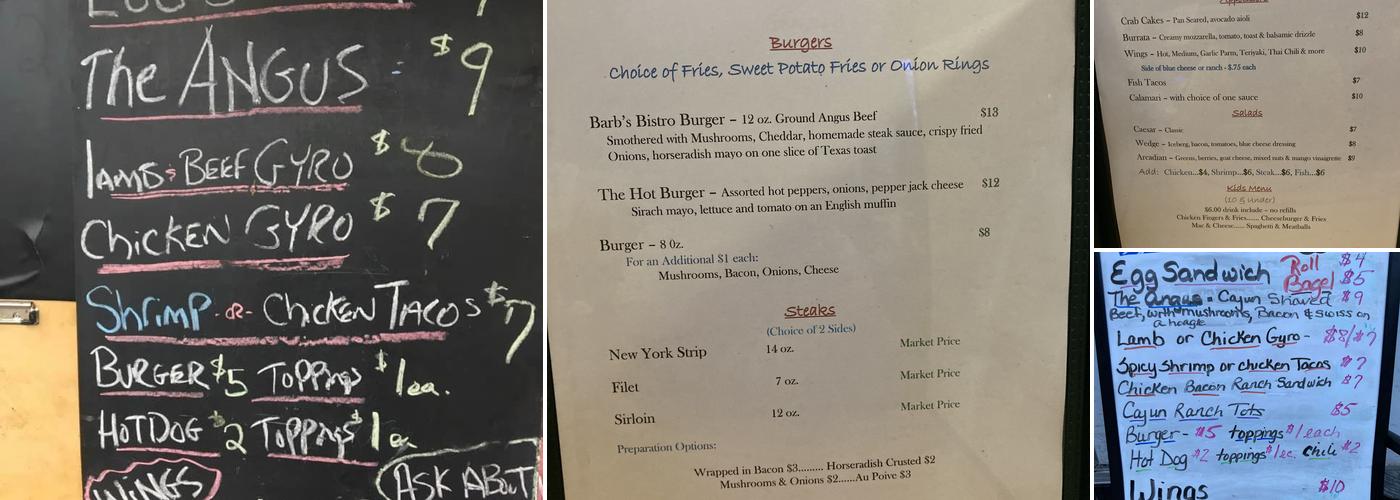 The ANGUS - $9
LAMB & BEEF GYRO $8
CHICKEN GYRO $7
Shrimp -OR- CHICKEN TACOS $7
BURGER $5 TOPPINGS $1ea.
HOTDOG $2 TOPPINGS $1ea
WINGS
ASK ABOUT
Burgers
Choice of Fries, Sweet Potato Fries or Onion Rings
Barb's Bistro Burger – 12 oz. Ground Angus Beef $13
Smothered with Mushrooms, Cheddar, homemade steak sauce, crispy fried
Onions, horseradish mayo on one slice of Texas toast
The Hot Burger – Assorted hot peppers, onions, pepper jack cheese $12
Sirach mayo, lettuce and tomato on an English muffin
Burger – 8 0z. $8
For an Additional $1 each:
Mushrooms, Bacon, Onions, Cheese
Steaks
(Choice of 2 Sides)
New York Strip 14 oz. Market Price
Filet 7 oz. Market Price
Sirloin 12 oz. Market Price
Preparation Options:
Wrapped in Bacon $3......... Horseradish Crusted $2
Mushrooms & Onions $2......Au Poive $3
Crab Cakes – Pan Seared, avocado aioli $12
Burrata – Creamy mozzarella, tomato, toast & balsamic drizzle $8
Wings – Hot, Medium, Garlic Parm, Teriyaki, Thai Chili & more $10
Side of blue cheese or ranch - $.75 each
Fish Tacos $7
Calamari – with choice of one sauce $10
Salads
Caesar – Classic $7
Wedge – Iceberg, bacon, tomatoes, blue cheese dressing $8
Arcadian – Greens, berries, goat cheese, mixed nuts & mango vinaigrette $9
Add: Chicken...$4, Shrimp...$6, Steak...$6, Fish...$6
Kids Menu
(10 & Under)
$6.00 drink include – no refills
Chicken Fingers & Fries...... Cheeseburger & Fries
Mac & Cheese...... Spaghetti & Meatballs
Egg Sandwich Roll $4
Bagel $5
The Angus - Cajun Shaved $9
Beef, with mushrooms, Bacon & Swiss on
a hoagie
Lamb or Chicken Gyro - $8/$7
Spicy Shrimp or chicken Tacos $7
Chicken Bacon Ranch Sandwich $7
Cajun Ranch Tots $5
Burger - $5 toppings $1 each
Hot Dog $2 toppings $1 ea. Chili $2
Wings $10